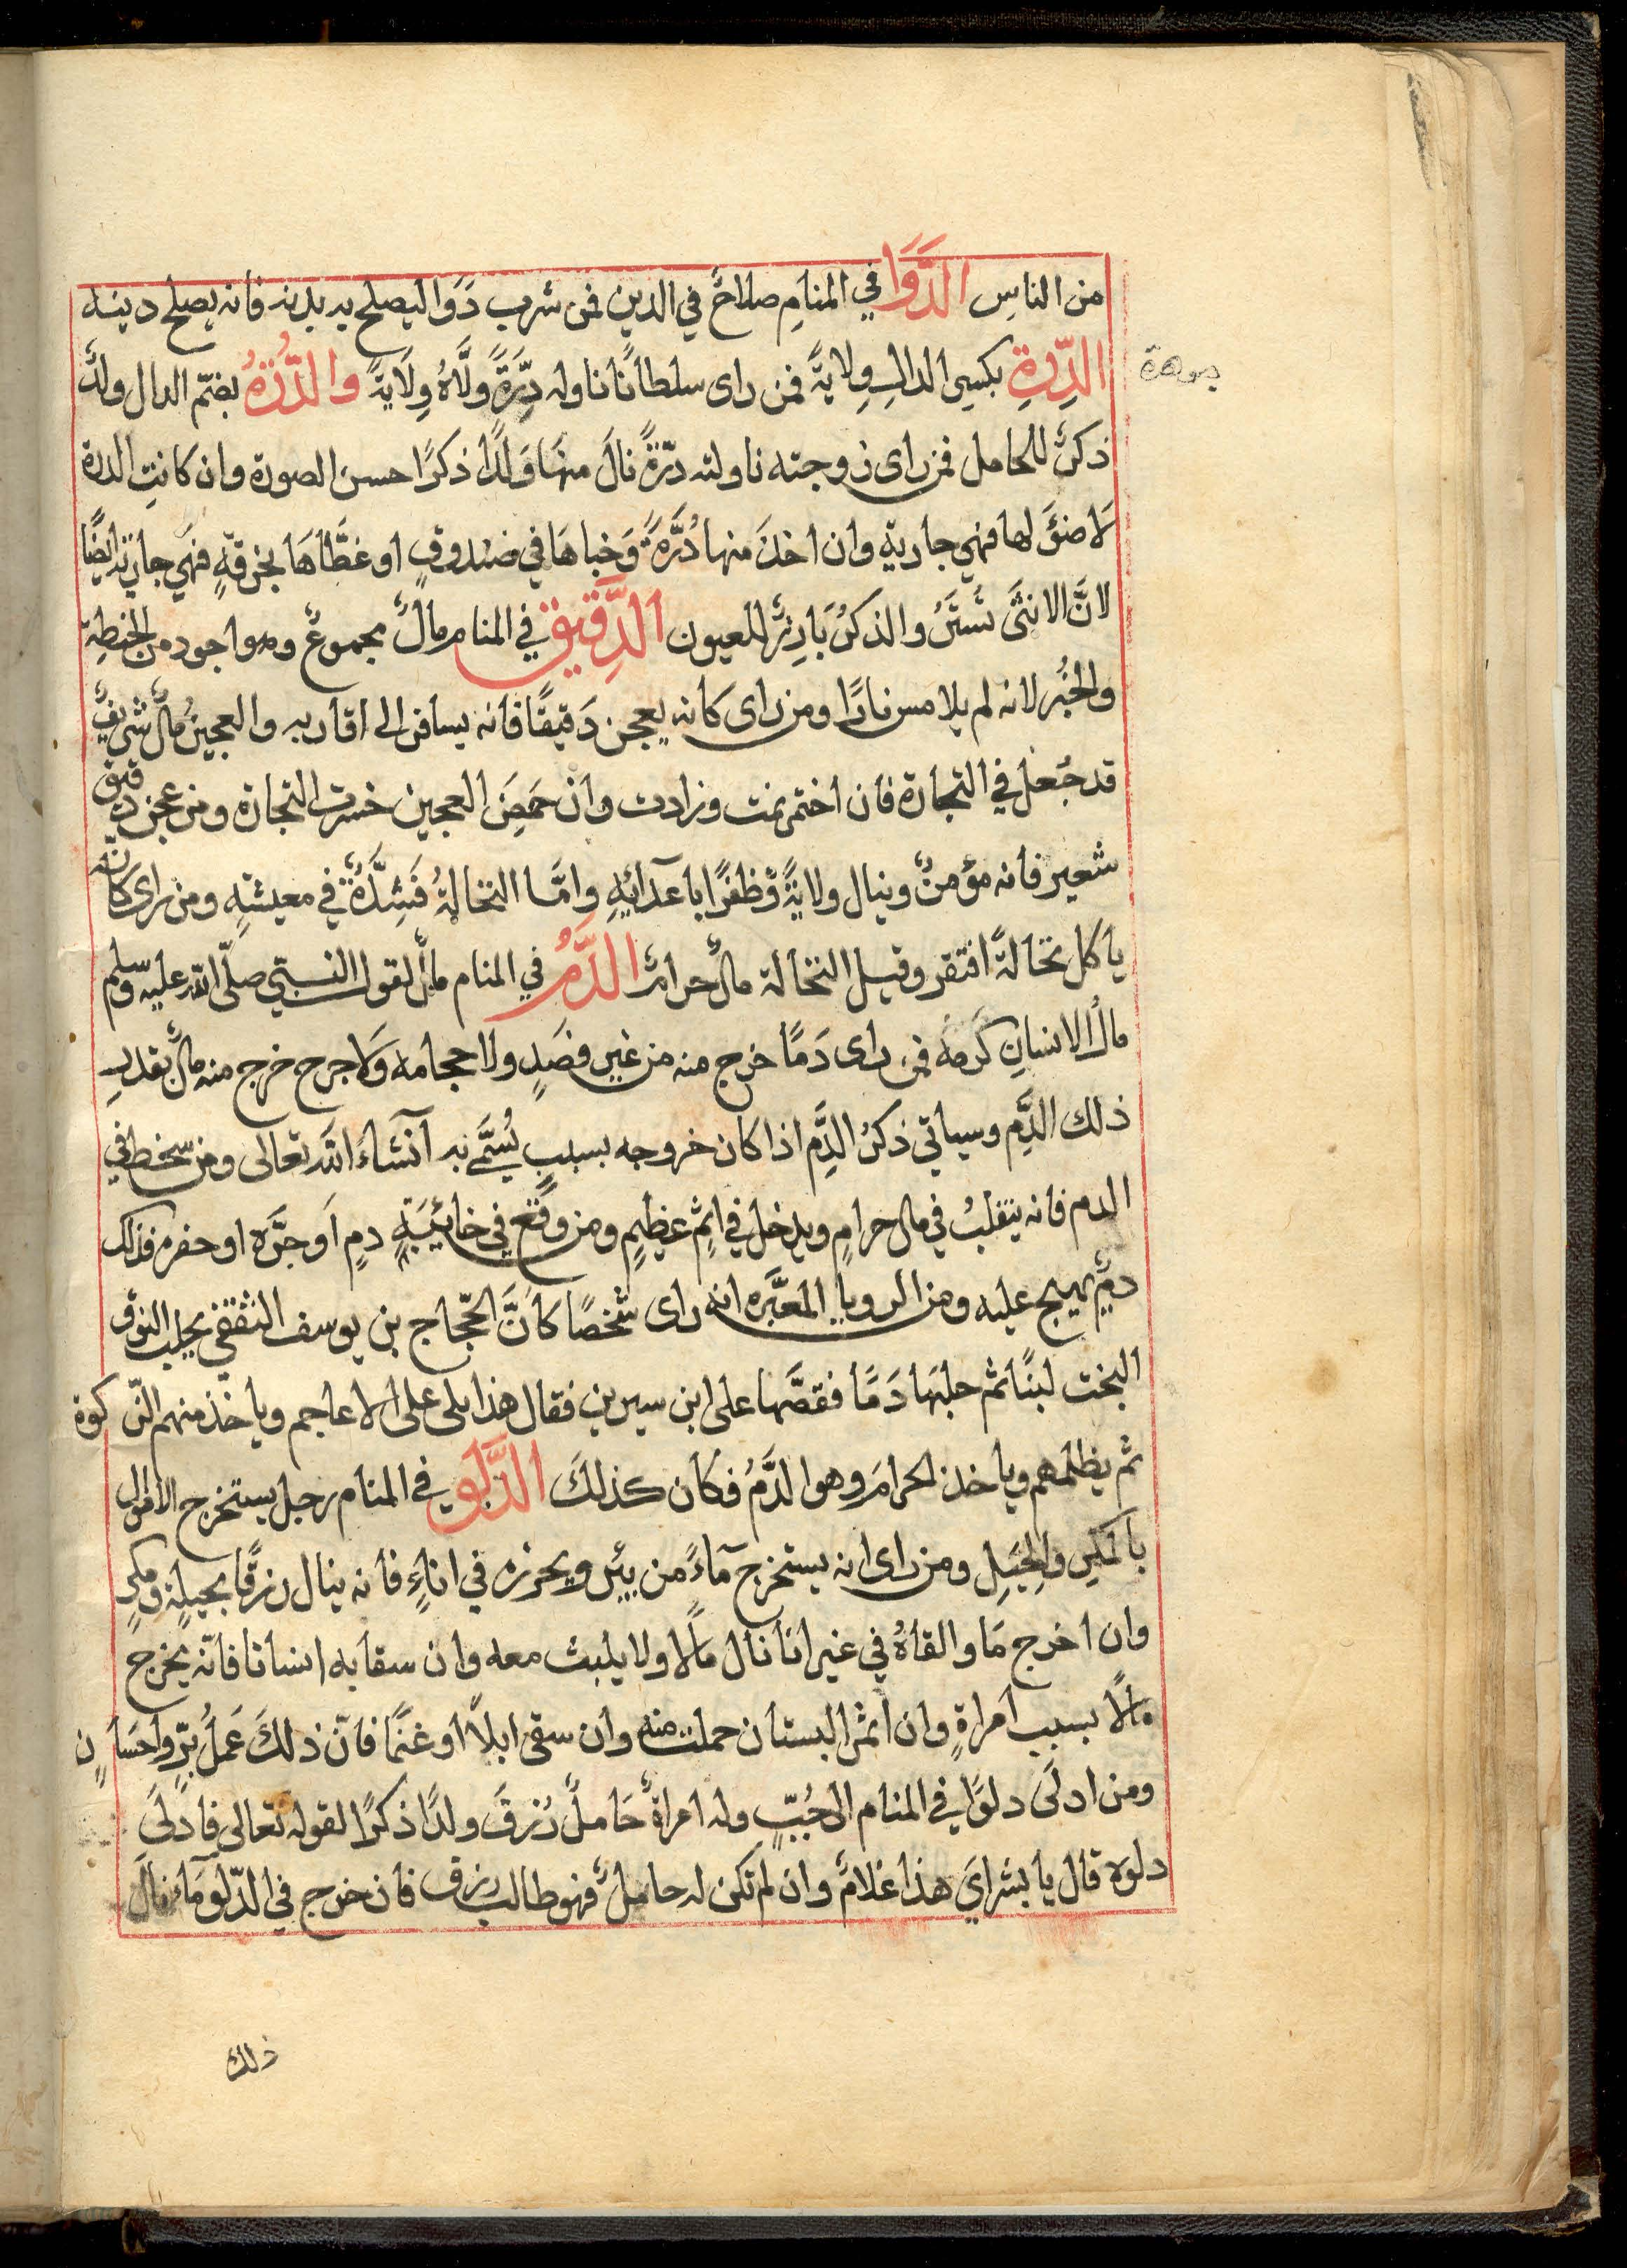 من الناس الدَّوَا في المنام صلاحٌ في الدين فمن شرب دَوَا ليصلح به بدنه فانه يصلح دينه
الدِّرةِ بكسر الدالِ وِلايةً فمن راى سلطانًا ناوله دِرَّةً ولَّاهُ وِلَايةً والدُّرَةُ بضمّ الدال ولدٌ
جوهرة
ذكرٌ للحامل فمن راى زوجته ناولته درّةً نالَ منهَا وَلدًا ذكرًا حسن الصورة وان كانتِ الدرة
لَا ضئَ لها فهي جارية وان اخذَ منها دُرَّةً وَخباهَا في صندوقٍ او غطَّاهَا بخرقةٍ فهي جارية ايضًا
لانَّ الانثَى تُستَرُ والذكرُ بَارِزٌ للعيون الدَّقِيق في المنام مالٌ مجموعٌ وهو اجود من الحنطة
والخُبز لانه لم يلامس نارًا ومن راى كانه يعجن دَقيقًا فانه يسافر الى اقاربه والعجينُ مالٌ شريفٌ
قد جُعل في التجارة فان اختمر نمت وزادت وان حمَضَ العجين خسرت التجارة ومن عجن دقيق
شعير فانه مؤمنٌ وينال ولايةً وَظفرًا باعدَائهِ وامَّا النخالةُ فَشِدَّةٌ في معيشتهِ ومن راى كانه
ياكل نخالةً افتقر وقيل النخالة مالٌ حرامٌ الدَّمُ في المنام مالٌ لقول النبي صلّى الله عليه وسلم
مالُ الانسانِ كَدمه فمن راى دَمًا خرج منه من غير فصَدٍ ولا حجامه وَلا جرح خرج منه مالٌ بقدرِ
ذلك الدَّمِ وسياتي ذكرُ الدَّم اذا كان خروجه بسببٍ يُسَمَّى به انشَاءَ الله تعالى ومن سخط في
الدم فانه يتقلبُ في مال حرامٍ ويدخل في اثم عظيمٍ ومن وقَع في خابئيَةِ دمٍ اَو جَرّه او حفره فذلك
دمٌ يهيج عليه ومن الرويا المعبَّره انه راى شخصًا كانَّ الحّجاج بن يوسف الثقفي يحلب النوق
البخت لبنًا ثم حلبَها دَمًا فقصَّها على ابن سيرين فقال هذا يلي على الاعاجم وياخذ منهم الزكوة
ثم يظلمهم وياخذ الحرامَ وهو الدَّمُ فكان كذلكَ الدَّلَو في المنام رجل يستخرج الاموال
بالمكرِ والحِيَلِ ومن راى انه يستخرج مآءً من بئر ويحرزه في اناءٍ فانه ينال رزقًا بحيلةٍ ومكرٍ
وان اخرج مَا والقاهُ في غير انا نال مالًا ولا يلبث معه وان سقا به انسانا فانّه يخرج
مالًا بسبب امراةٍ وان اثمر البستان حملت منه وان سقى ابلًا او غنمًا فانّ ذلكَ عَمَلُ برٍّ واحسَانٍ
ومن ادلَى دلوًا في المنام الى جُبٍّ وله امراةٌ حَاملٌ رُزقَ ولدًا ذكرًا لقوله تعالى فادلَى
دلوَه قال يا بشرايَ هذا غلامٌ وان لم تكن له حاملٌ فهو طالب رزق فان خرج في الدّلو مَآء نال
ذلك